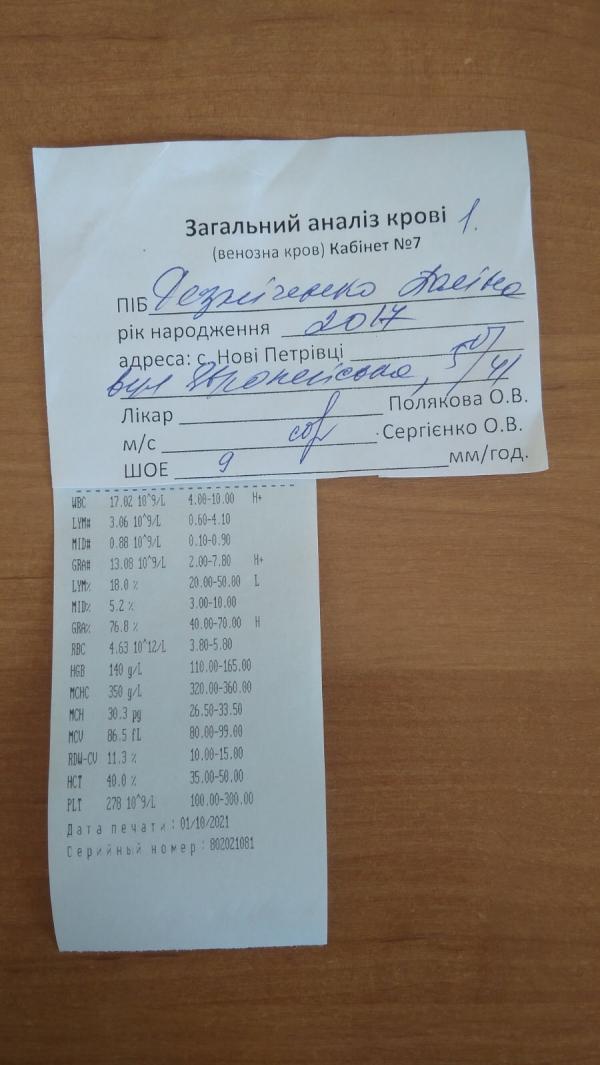 Загальний аналіз крові 1.
(венозна кров) Кабінет №7
ПІБ
рік народження 2017
адреса: с. Нові Петрівці
вул Європейська,
Лікар Полякова О.В.
м/с Сергієнко О.В.
ШОЕ 9 мм/год.
WBC 17.02 10^9/L 4.00-10.00 H+
LYM# 3.06 10^9/L 0.60-4.10
MID# 0.88 10^9/L 0.10-0.90
GRA# 13.08 10^9/L 2.00-7.80 H+
LYM% 18.0 % 20.00-50.00 L
MID% 5.2 % 3.00-10.00
GRA% 76.8 % 40.00-70.00 H
RBC 4.63 10^12/L 3.80-5.80
HGB 140 g/L 110.00-165.00
MCHC 350 g/L 320.00-360.00
MCH 30.3 pg 26.50-33.50
MCV 86.5 fL 80.00-99.00
RDW-CV 11.3 % 10.00-15.00
HCT 40.0 % 35.00-50.00
PLT 278 10^9/L 100.00-300.00
Дата печати : 01/10/2021
Серийный номер : 802021081